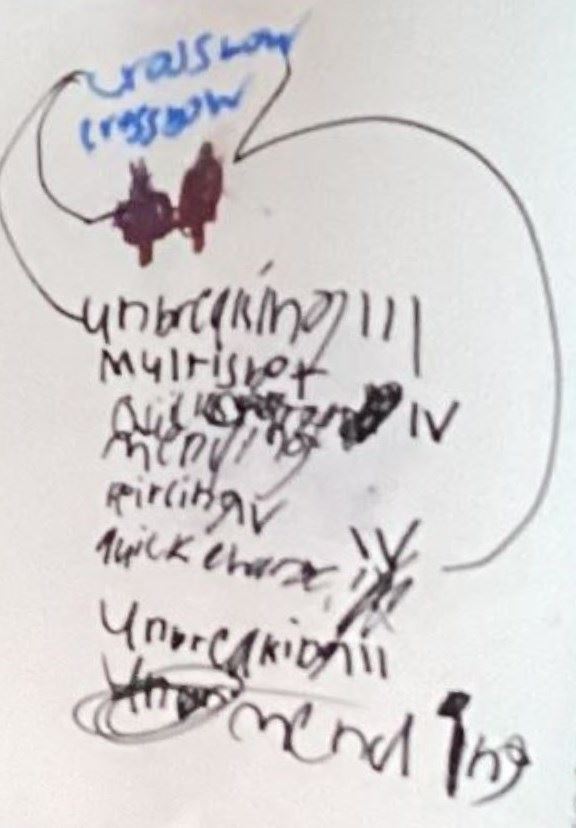 crossbow
crossbow
unbreaking III
multishot
quick charge IV
mending
peircing IV
quick charge IV
unbreakiong II
mending